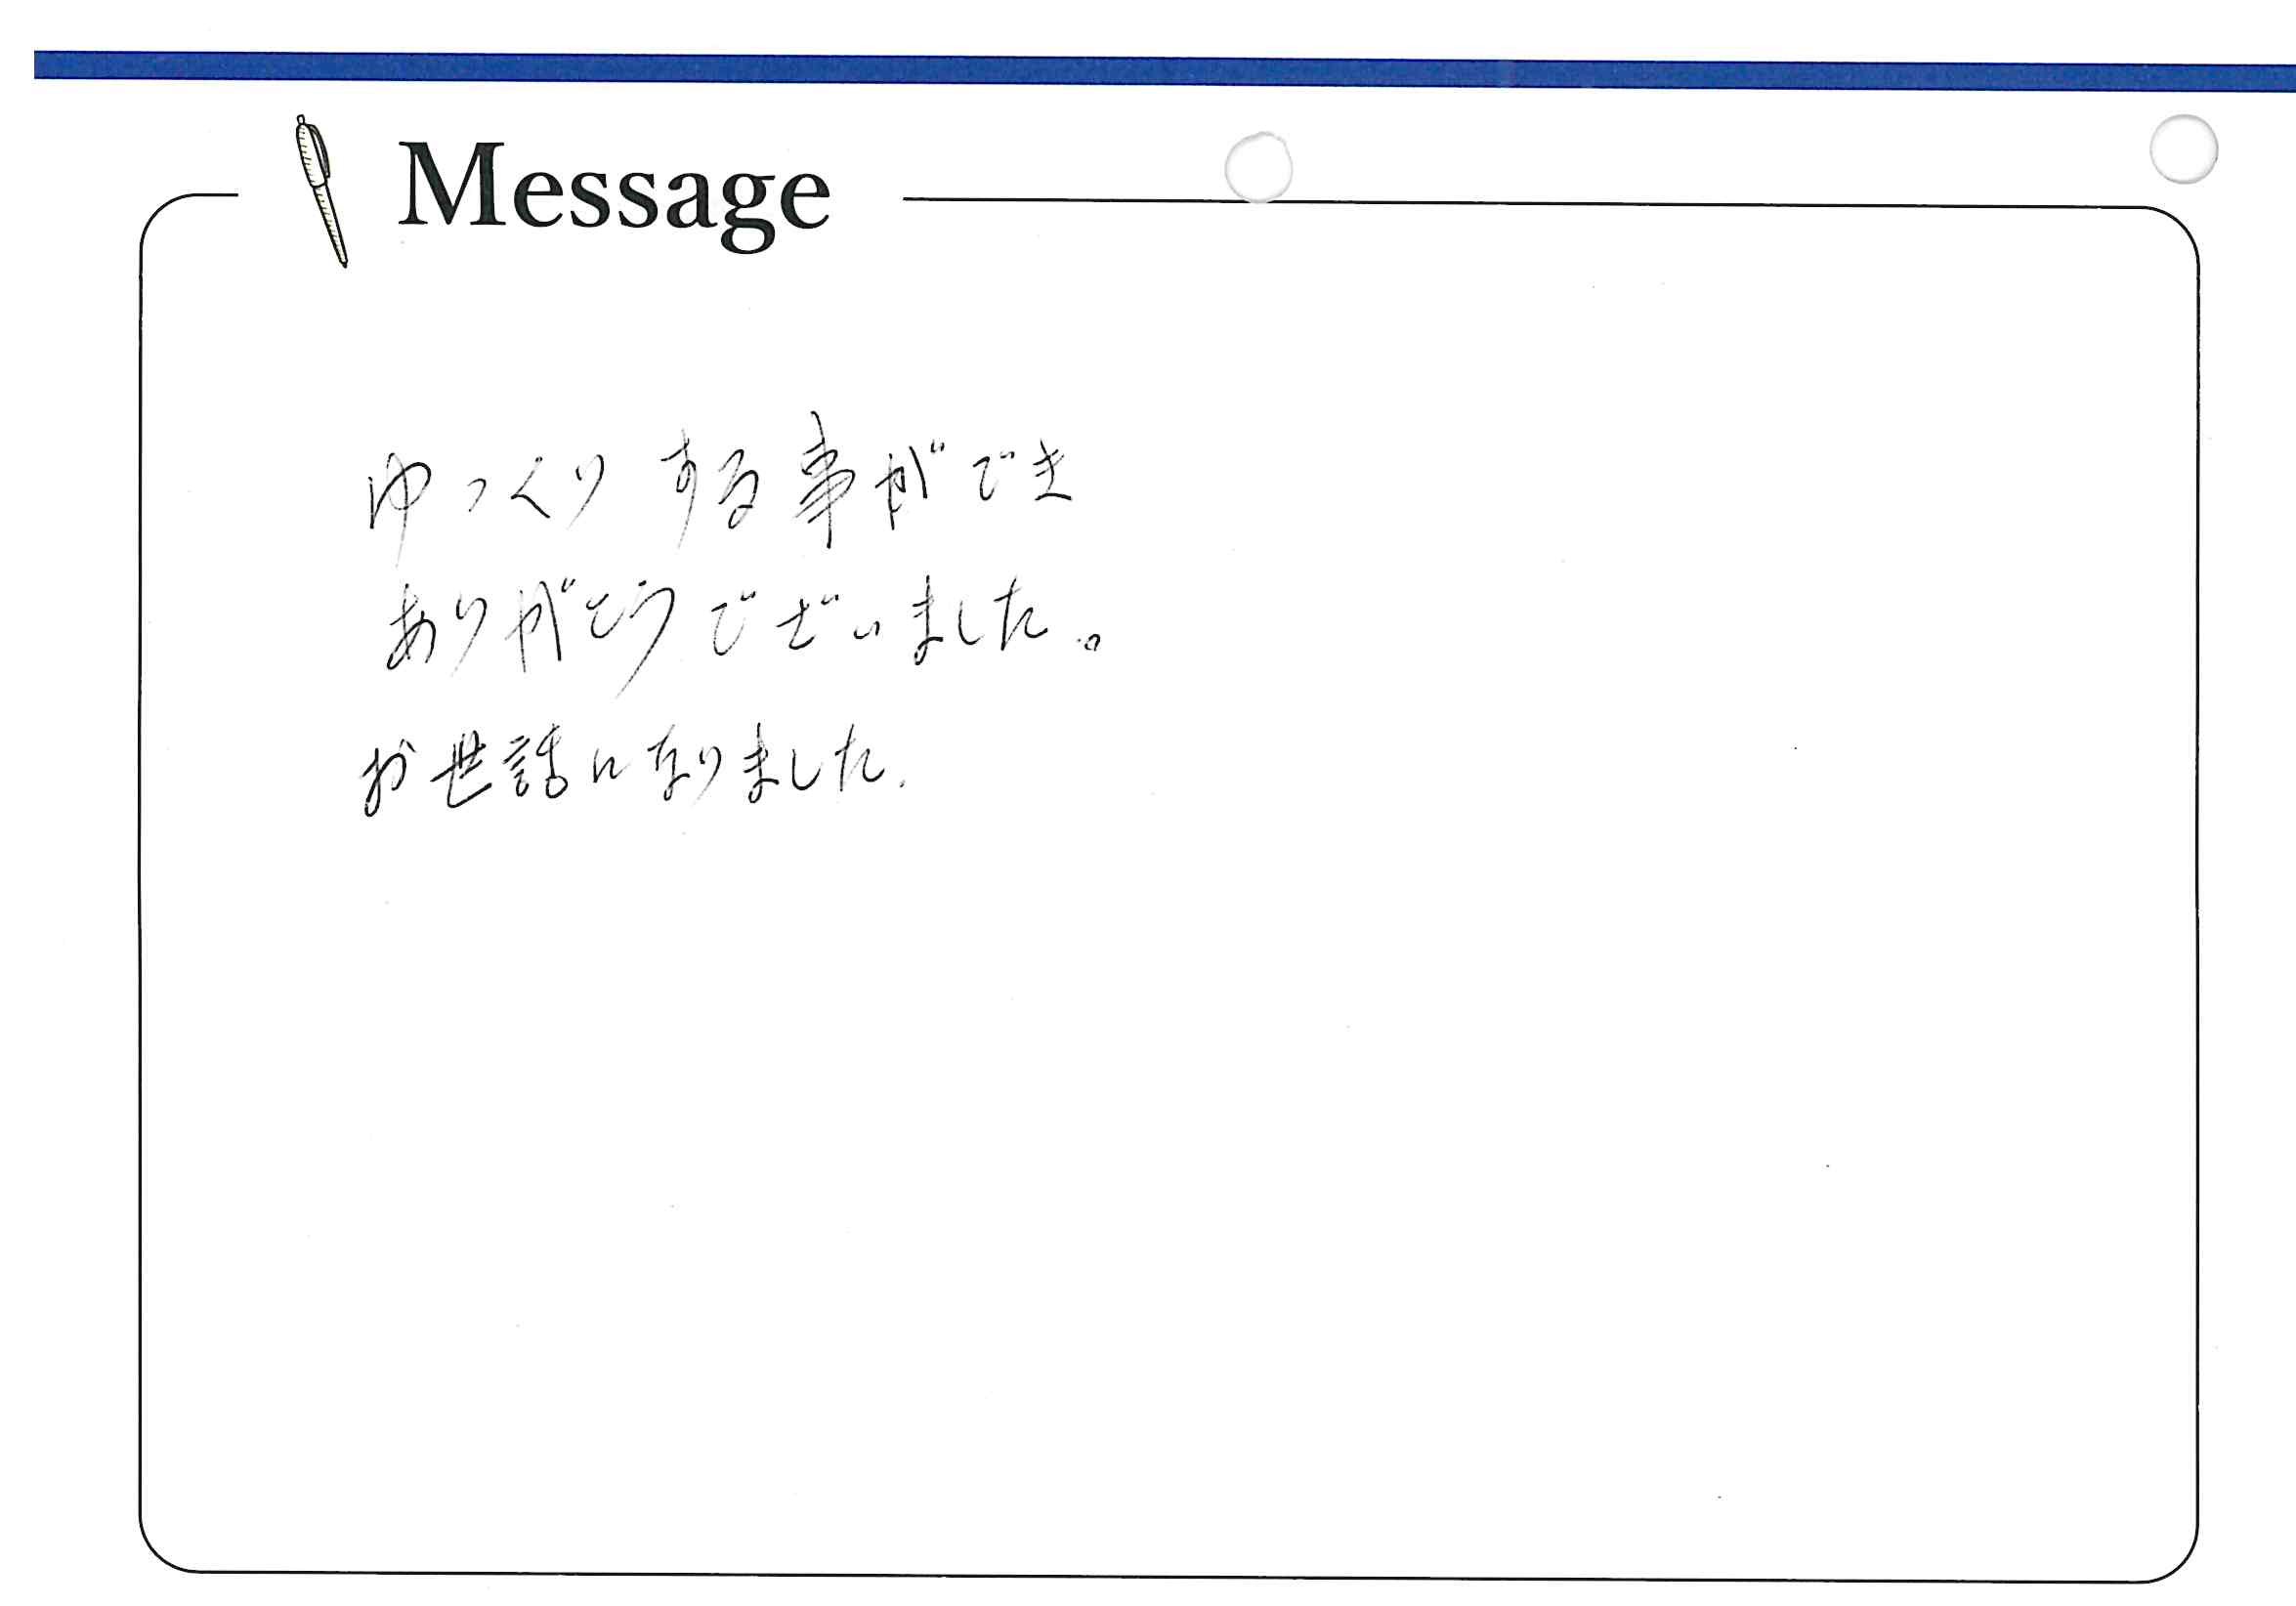 Message
ゆっくりする事ができ
ありがとうございました。
お世話になりました.